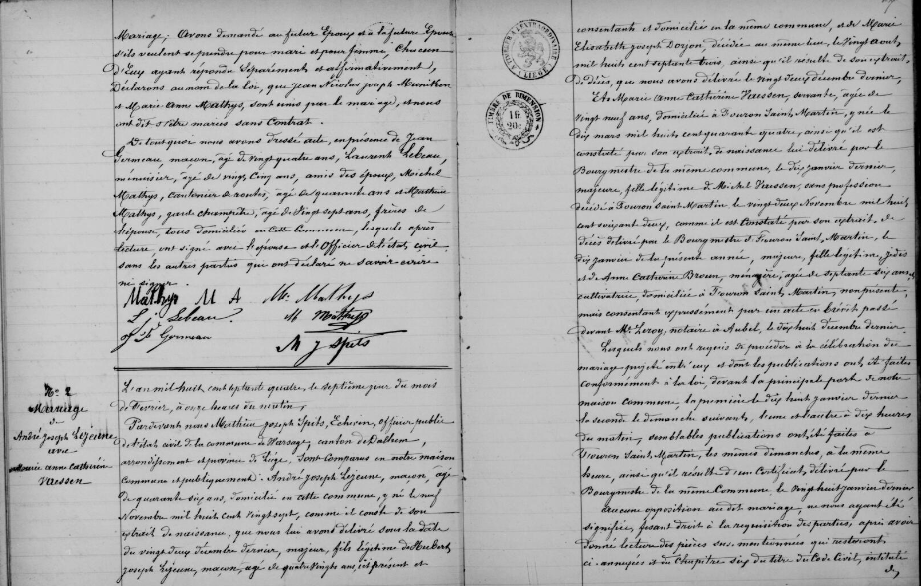 Mariage; Avons demandé au futur Epoux et à la future Epouse
s'ils veulent se prendre pour mari et pour femme, Chacun
d'Eux ayant répondu séparément et affirmativement,
Déclarons au nom de la loi, que Jean Nicolas Joseph
et Marie Anne Mathys, sont unis par le mariage, et nous
ont dit s'être mariés sans Contrat.
De tout quoi nous avons dressé acte, en présence de Jean
Germeau maçon, agé de vingt quatre ans, Laurent Lebeau,
menuisier, agé de vingt Cinq ans, amis des époux, Michel
Mathys, Cantonier de routes, agé de quarante ans et Mathieu
Mathys, garde champêtre, agé de vingt sept ans, frères de
l'épouse, tous domiciliés en cette Commune, lesquels après
lecture, ont signé avec l'épouse et l'Officier de l'état civil
sans les autres parties qui ont déclaré ne savoir écrire
ni signer.
Mathys M A M. Mathys
L. Lebeau. M Mathys
J Germeau
M J Spits
N° 2
Mariage
de
André Joseph Lejeune
avec
Marie anne Catherine
Vaessen
L'an mil huit cent septante quatre, le septième jour du mois
de Février, à onze heures du matin,
Pardevant nous Mathieu Joseph Spits, Echevin, officier public
de l'état civil de la commune de Warsage, canton de Dalhem,
arrondissement et province de Liége, sont comparus en notre maison
Commune et publiquement: André Joseph Lejeune, maçon, agé
de quarante six ans, domicilié en cette commune, y né le neuf
Novembre mil huit cent vingt sept, comme il conste de son
extrait de naissance, que nous lui avons délivré sous la date
du vingt deux décembre dernier, majeur, fils légitime de Hubert
Joseph Lejeune, maçon, agé de quatre vingts ans, ici présent et
TIMBRE A L'EXTRAORDINAIRE
LIEGE
TIMBRE DE DIMENSION
consentant et domiciliés en la même commune, et de Marie
Elisabeth Joseph Dozon, décédée au même lieu, le vingt aout,
mil huit cent septante trois, ainsi qu'il résulte de son extrait,
de décès, que nous avons délivré le vingt deux décembre dernier,
Et Marie Anne Cathérine Vaessen, servante, agée de
vingt neuf ans, domiciliée à Fouron Saint Martin, y née le
dix mars mil huit cent quarante quatre, ainsi qu'il est
constaté par son extrait, de naissance lui délivré par le
Bourgmestre de la même commune, le dix janvier dernier
majeure, fille légitime de Michel Vaessen, sans profession
décédé à Fouron Saint Martin le vingt deux Novembre mil huit
cent soixante deux, comme il est Constaté par son extrait de
décès délivré par le Bourgmestre de Fouron Saint Martin, le
dix janvier de la présente année, majeure, fille légitime,
et de Anne Catherine Broun, ménagère, agée de septante six ans
cultivatrice, domiciliée à Fouron Saint Martin, non présente,
mais consentant expressement par un acte en brévet passé
devant Me Leroy, notaire à Aubel, le dix huit décembre dernier.
Lesquels nous ont requis de procéder à la célébration du
mariage projeté entr'eux et dont les publications ont été faites
conformément à la loi, devant la principale porte de notre
maison Commune, la première le dix huit janvier dernier
la seconde le dimanche suivant, l'une et l'autre à dix heures
du matin, semblables publications ont été faites à
Fouron Saint Martin, les mêmes dimanches, à la même
heure, ainsi qu'il résulte d'un Certificat, délivré par le
Bourgmestre de la même Commune, le vingt huit janvier dernier
Aucune opposition au dit mariage, ne nous ayant été
signifiée, fesant droit à la réquisition des parties, après avoir
donné lecture des pièces sus-mentionnées qui resteront
ci-annexées et du Chapitre six du titre du Code Civil, intitulé